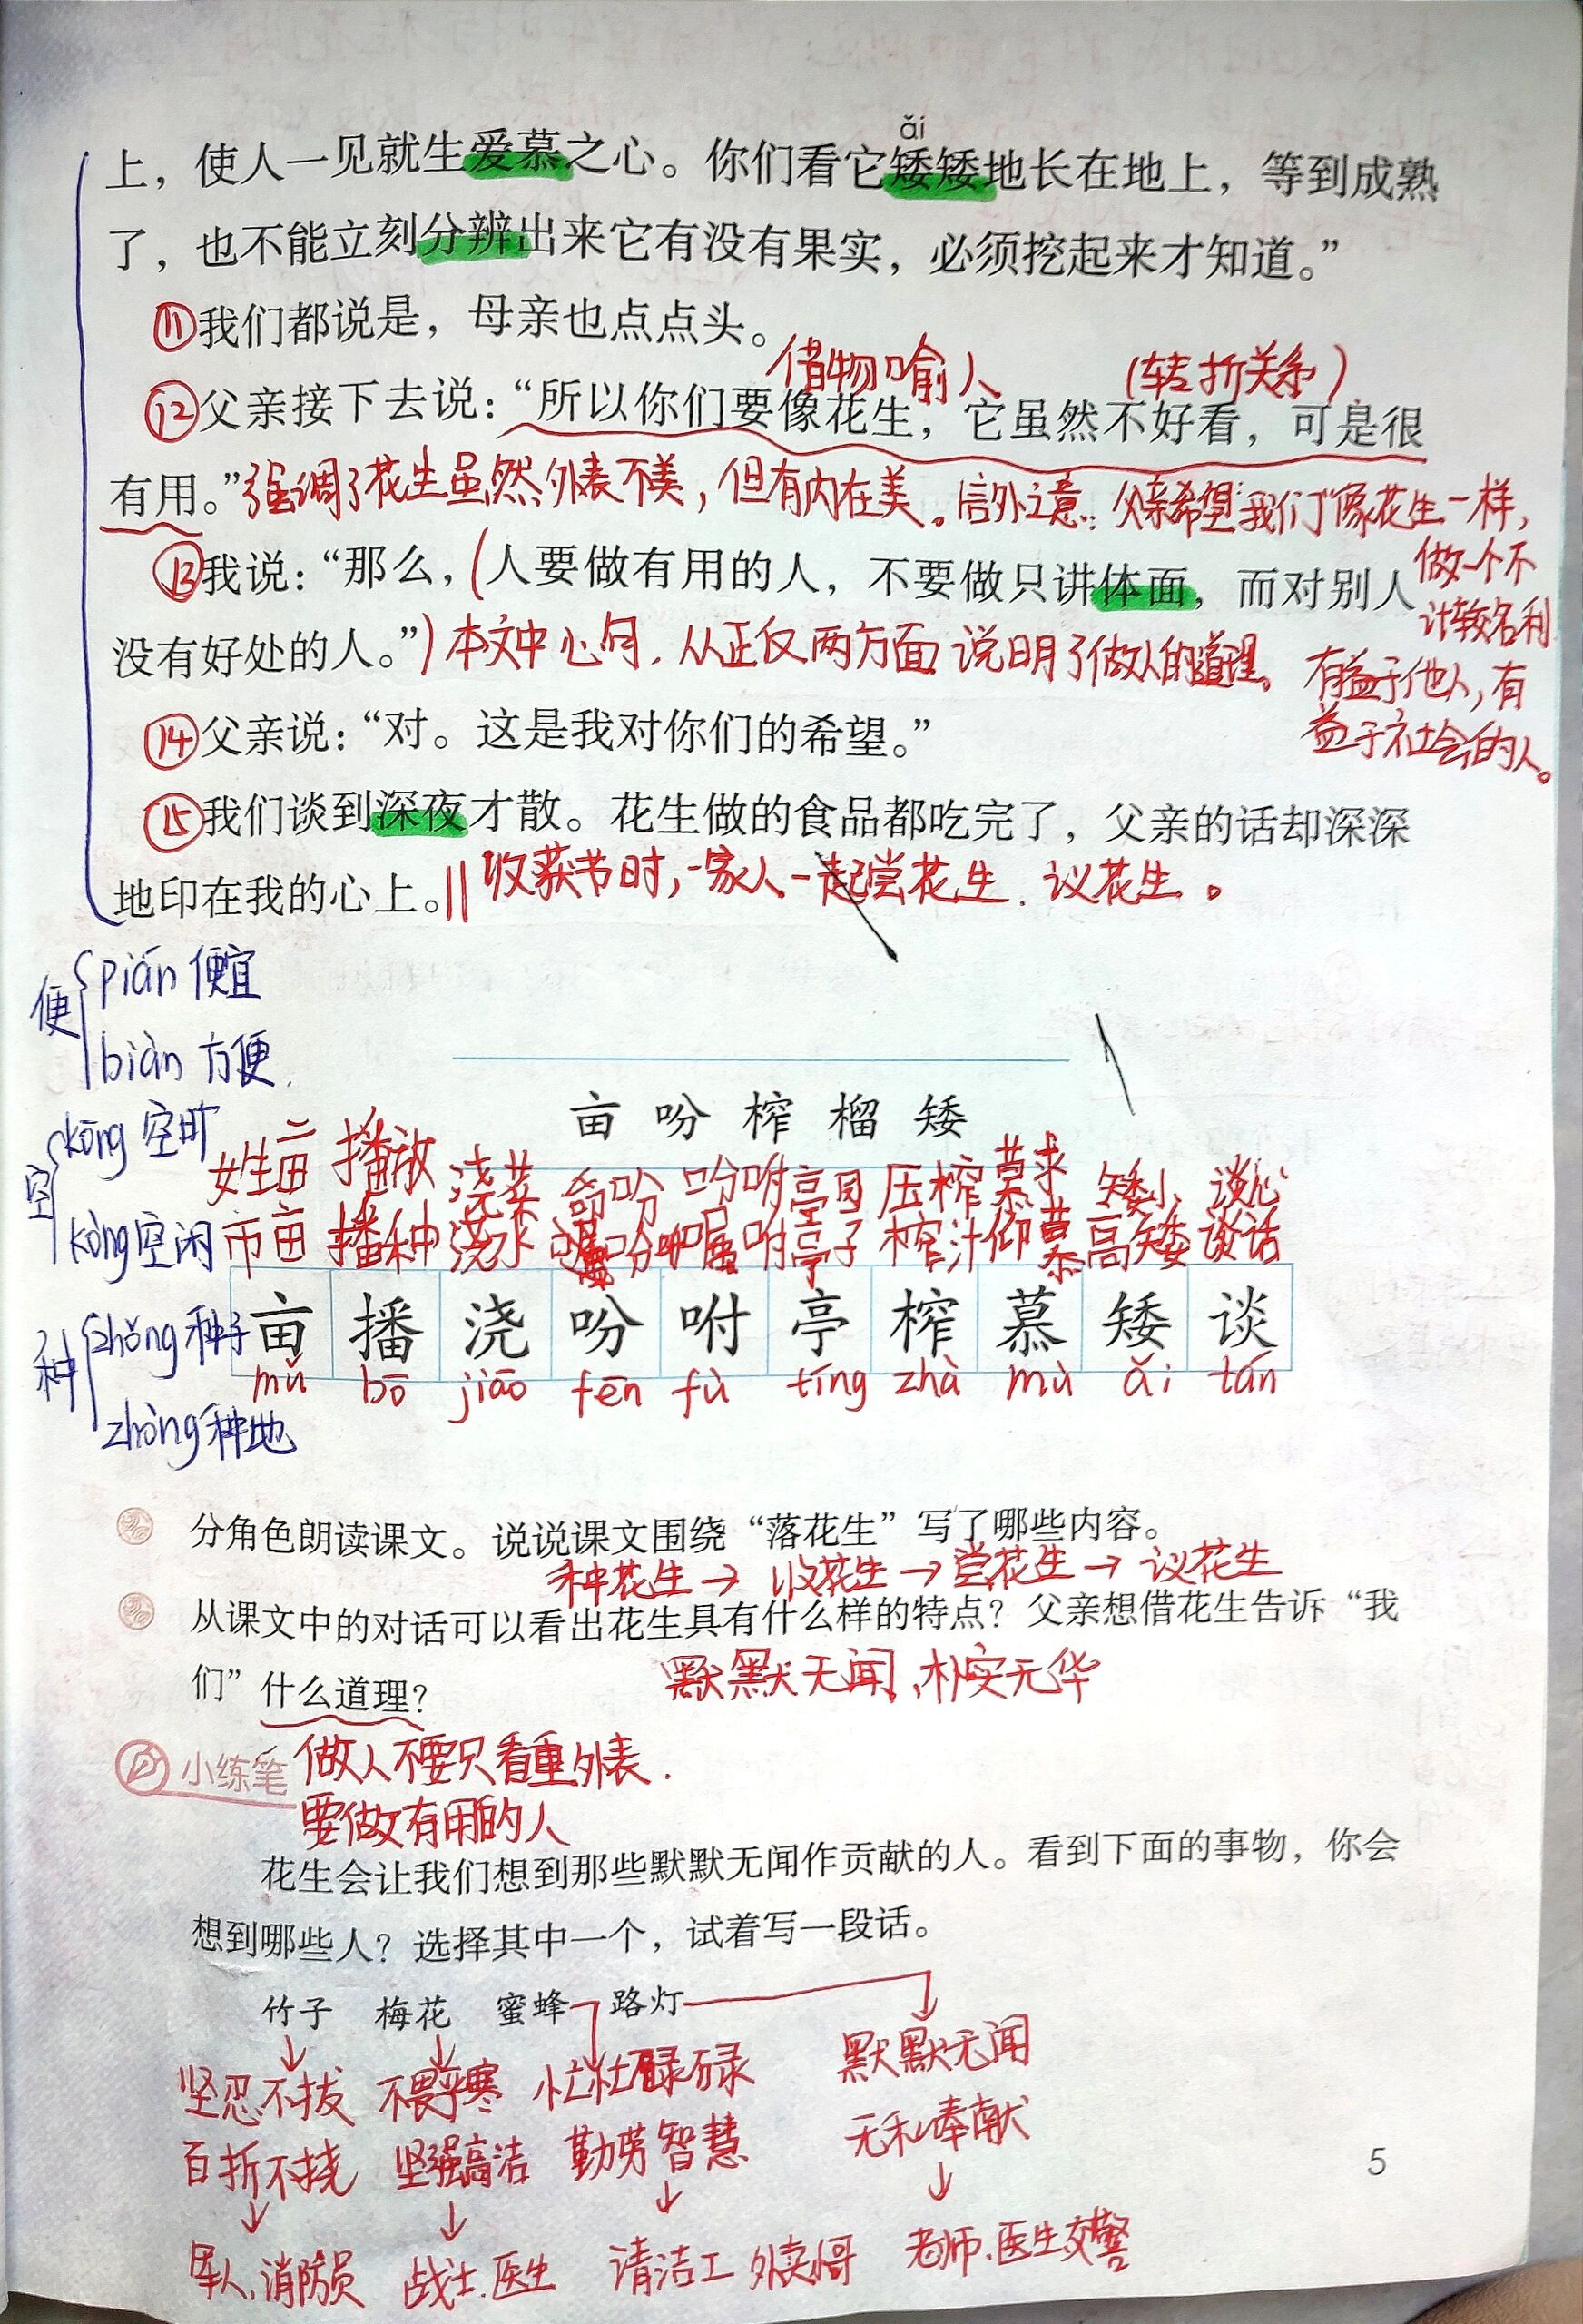 ǎi
上，使人一见就生爱慕之心。你们看它矮矮地长在地上，等到成熟
了，也不能立刻分辨出来它有没有果实，必须挖起来才知道。”
⑪我们都说是，母亲也点点头。
借物喻人 （转折关系）
⑫父亲接下去说：“所以你们要像花生，它虽然不好看，可是很
有用。”强调了花生虽然外表不美，但有内在美。言外之意：父亲希望“我们”像花生一样，
做一个不
⑬我说：“那么，（人要做有用的人，不要做只讲体面，而对别人
计较名利
没有好处的人。”）本文中心句，从正反两方面说明了做人的道理。
有益于他人，有
⑭父亲说：“对。这是我对你们的希望。”
益于社会的人。
⑮我们谈到深夜才散。花生做的食品都吃完了，父亲的话却深深
地印在我的心上。‖收获节时，一家人一起尝花生、议花生。
便 pián 便宜
biàn 方便
亩 吩 榨 榴 矮
空 kōng 空旷
kòng 空闲
播放 浇菜 吩咐 亭园 压榨 慕求 矮小 谈心
播种 浇水 嘱咐 亭子 榨汁 仰慕 高矮 谈话
种 zhǒng 种子
zhòng 种地
亩 播 浇 吩 咐 亭 榨 慕 矮 谈
mǔ bō jiāo fēn fù tíng zhà mù ǎi tán
分角色朗读课文。说说课文围绕“落花生”写了哪些内容。
种花生→收花生→尝花生→议花生
从课文中的对话可以看出花生具有什么样的特点？父亲想借花生告诉“我
们”什么道理？
默默无闻、朴实无华
小练笔
做人不要只看重外表.
要做有用的人
花生会让我们想到那些默默无闻作贡献的人。看到下面的事物，你会
想到哪些人？选择其中一个，试着写一段话。
竹子 梅花 蜜蜂 路灯
坚忍不拔 不畏严寒 忙忙碌碌 默默无闻
百折不挠 坚强高洁 勤劳智慧 无私奉献
军人、消防员 战士、医生 清洁工 外卖小哥 老师、医生 交警
5